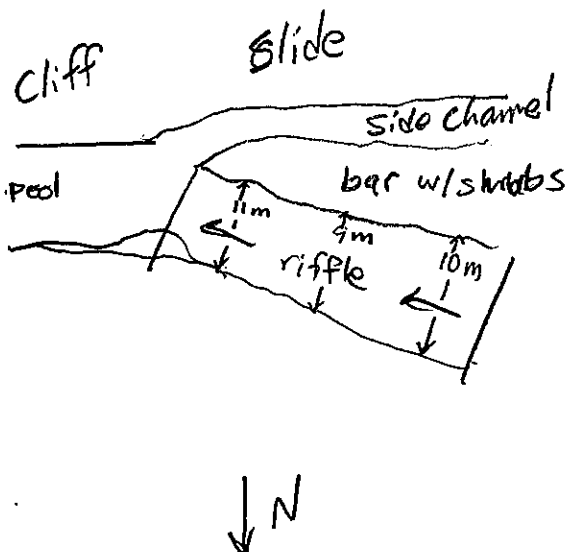 Slide
Cliff
side channel
pool
bar w/shrubs
11m
9m
10m
riffle
N